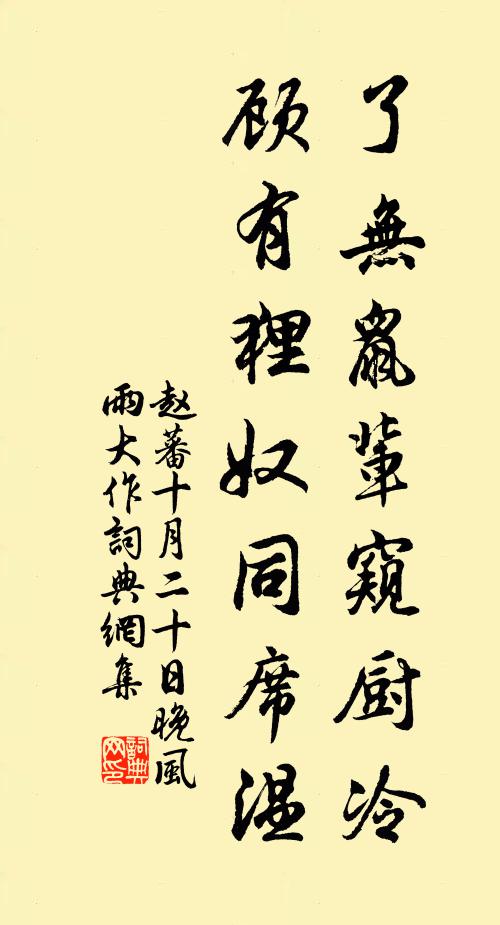 了無鼠輩窺厨冷
顾有狸奴同席温
赵蕃十月二十日晚風
雨大作詞典網集
詞典
网印